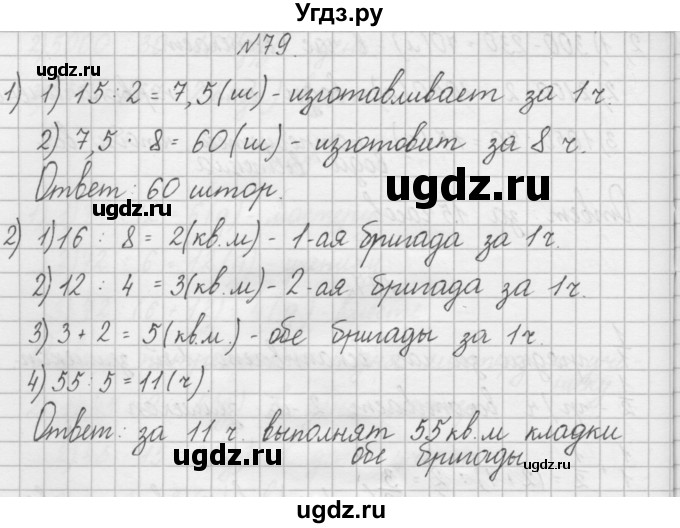 Угдз.ру
№79.
1) 1) 15 : 2 = 7,5 (ш) - изготавливает за 1 ч.
2) 7,5 · 8 = 60 (ш) - изготовит за 8 ч.
Ответ: 60 штор.
ugdz.ru
ugdz.ru
2) 1) 16 : 8 = 2 (кв.м) - 1-ая бригада за 1 ч.
ugdz.ru
ugdz.ru
2) 12 : 4 = 3 (кв.м) - 2-ая бригада за 1 ч.
3) 3 + 2 = 5 (кв.м.) - обе бригады за 1 ч.
4) 55 : 5 = 11 (ч).
ugdz.ru
Ответ: за 11 ч. выполнят 55 кв.м кладки
обе бригады.
ugdz.ru
ugdz.ru
ugdz.ru